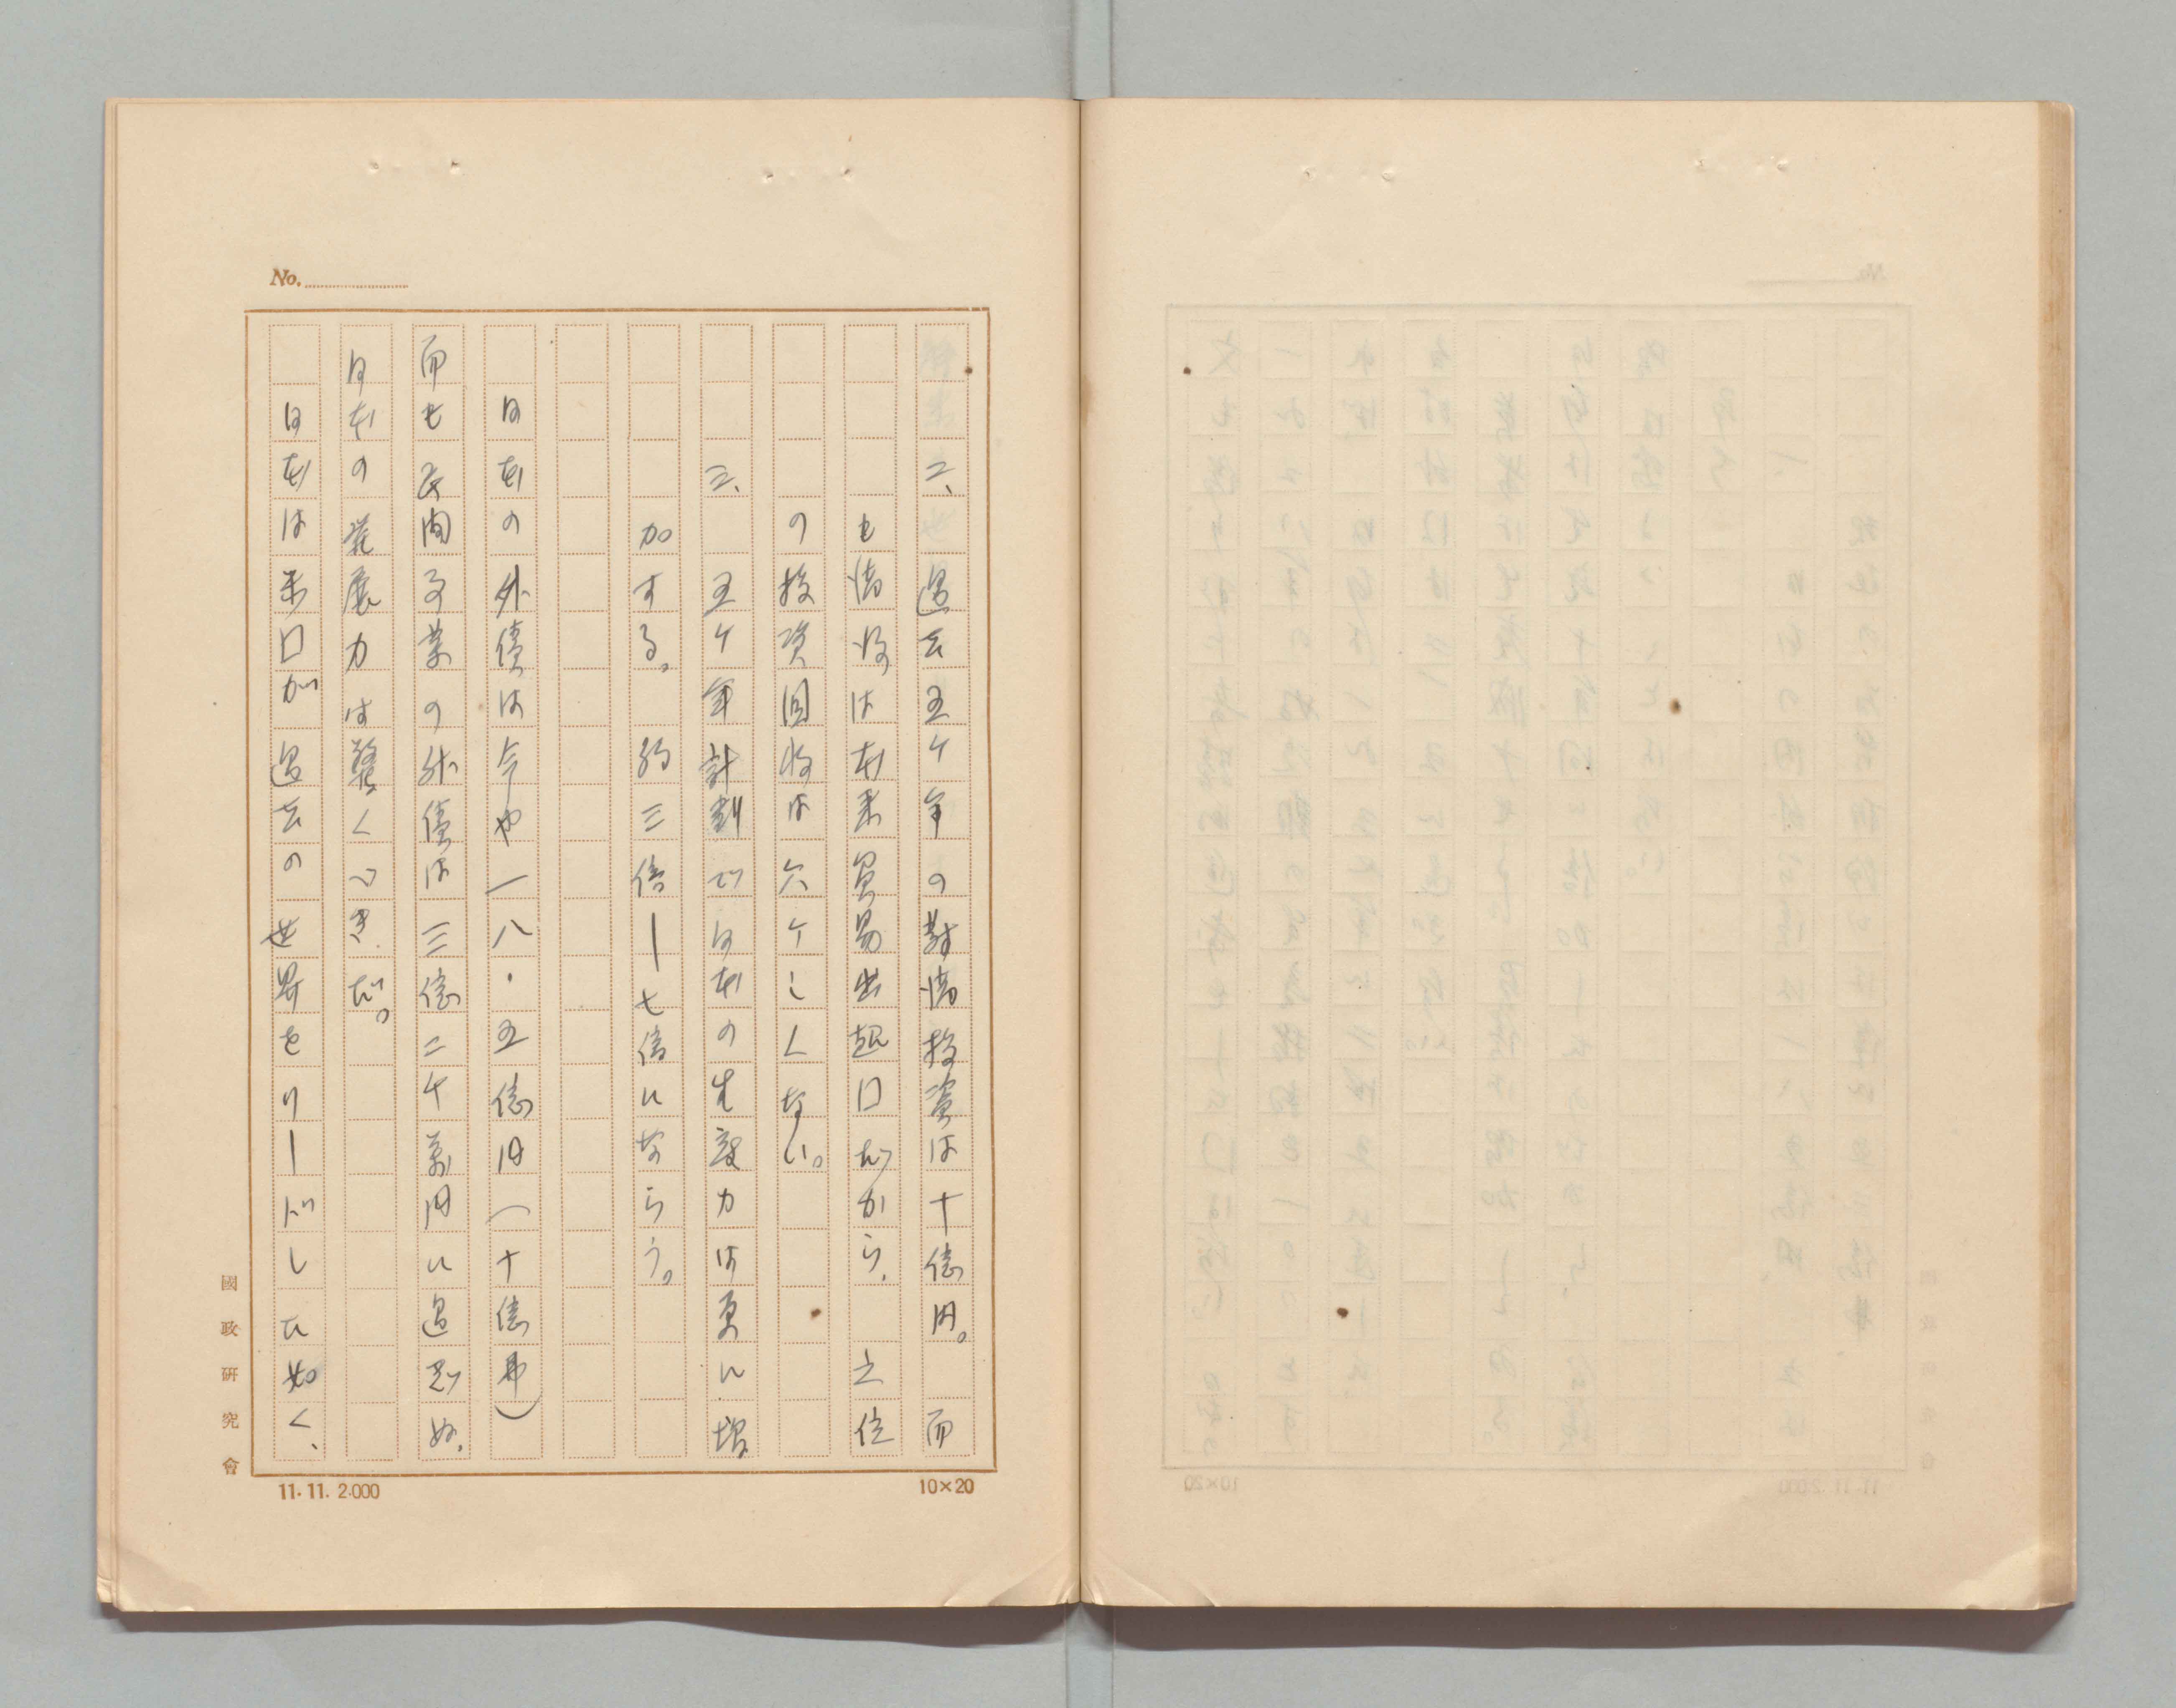 No.
二、過去五ケ年の對滿投資は十億円。而
も滿は本来貿易出超囗だから、之位
の投資回收は六ケしくない。
三、五ケ年計劃で日本の生産力は更に増
加する。約三倍ー七倍にならう。
日本の外債は今や一八・五億円(十億弗)
而も民間事業の外債は三億二千萬円に過ぎぬ。
日本の発展力は驚くべきだ。
日本は米囗が過去の世界をリードした如く、
國政研究會
11.11.2.000
10×20